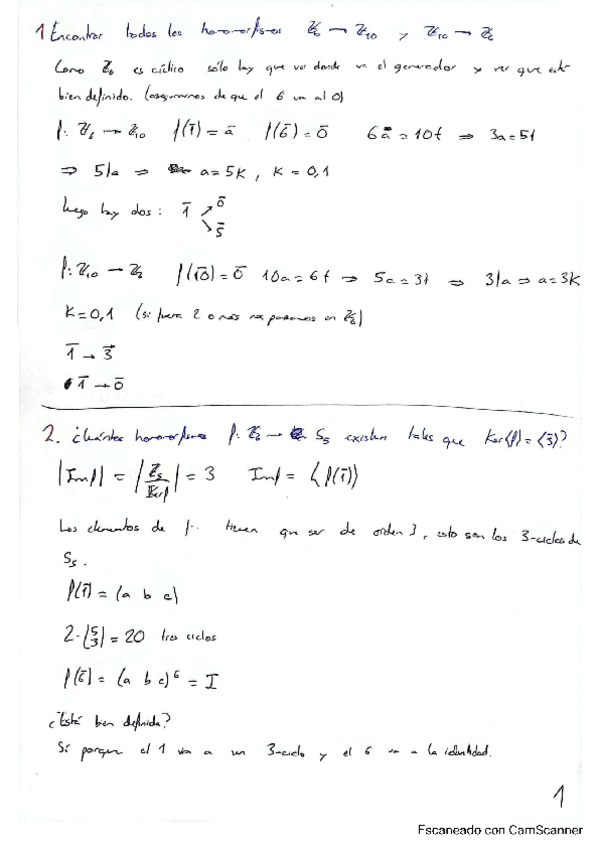 1 Encontrar todos los homomorfismos Z₆ → Z₁₀ y Z₁₀ → Z₆
Como Z₆ es cíclico sólo hay que ver donde va el generador y ver que esté
bien definido. (asegurarnos de que el 6 va al 0)
f: Z₆ → Z₁₀ f(1̄) = ā f(6̄) = 0̄ 6a = 10t ⇒ 3a = 5t
⇒ 5|a ⇒ a = 5k, k = 0,1
luego hay dos: 1̄ ↗ 0̄
↘ 5̄
f: Z₁₀ → Z₆ f(10̄) = 0̄ 10a = 6t ⇒ 5a = 3t ⇒ 3|a ⇒ a = 3k
k = 0,1 (si fuera 2 o más nos pasamos en Z₆)
1̄ → 3̄
1̄ → 0̄
2. ¿Cuántos homomorfismos f: Z₆ → S₅ existen tales que Ker(f) = ⟨3̄⟩?
|Imf| = |Z₆/Kerf| = 3 Imf = ⟨f(1̄)⟩
Los elementos de f.. tienen que ser de orden 3, esto son los 3-ciclos de
S₅.
f(1̄) = (a b c)
2·(5 3) = 20 tres ciclos
f(6̄) = (a b c)⁶ = I
¿Está bien definida?
Sí porque el 1 va a un 3-ciclo y el 6 va a la identidad.
1
Escaneado con CamScanner